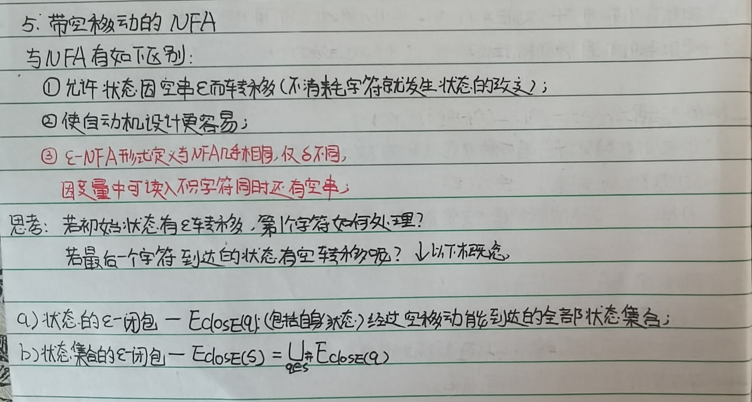 5. 带空移动的 NFA
与NFA有如下区别:
①允许状态因空串ε而转移(不消耗字符就发生状态的改变);
②使自动机设计更容易;
③ε-NFA形式定义与NFA几乎相同,仅δ不同,
因变量中可读入字符同时还有空串;
思考: 若初始状态有ε转移,第1个字符如何处理?
若最后一个字符到达的状态有空转移呢? ↓以下概念
a) 状态的ε-闭包 — Eclose(q): (包括自身状态)经过空移动能到达的全部状态集合;
b) 状态集合的ε-闭包 — Eclose(S) = ⋃q∈S Eclose(q)